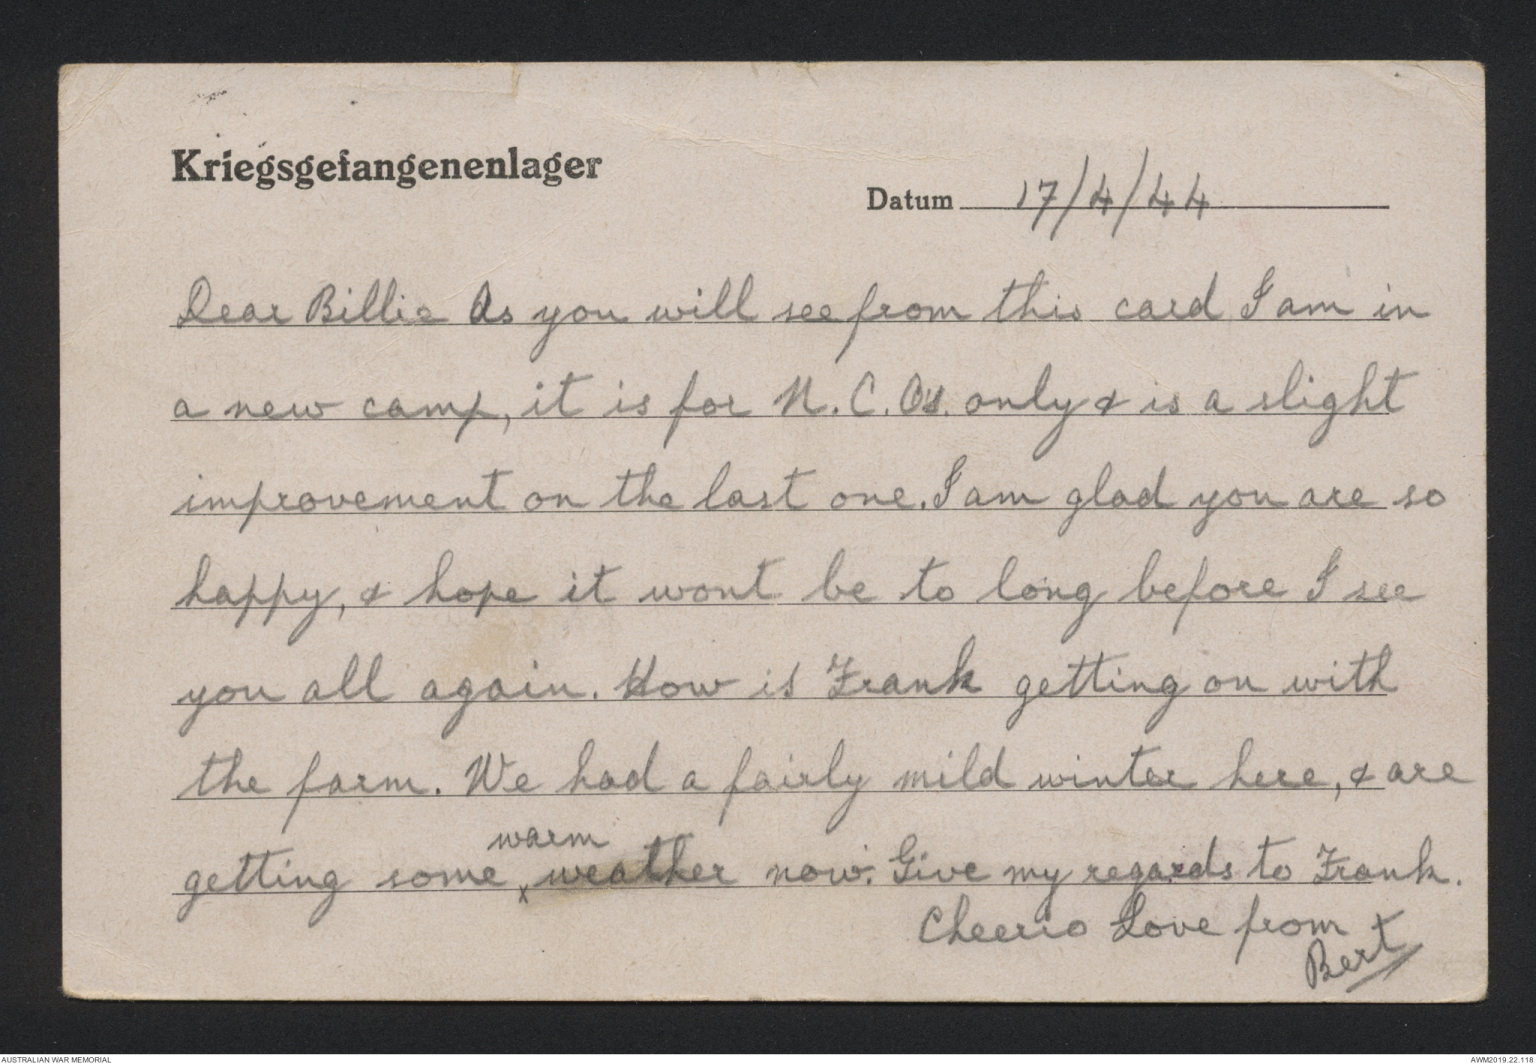 Kriegsgefangenenlager
Datum 17/4/44
Dear Billie As you will see from this card I am in
a new camp, it is for N.C.O's. only & is a slight
improvement on the last one. I am glad you are so
happy, & hope it wont be to long before I see
you all again. How is Frank getting on with
the farm. We had a fairly mild winter here, & are
warm
getting some x weather now. Give my regards to Frank.
Cheerio Love from
Bert
AUSTRALIAN WAR MEMORIAL
AWM2019.22.118